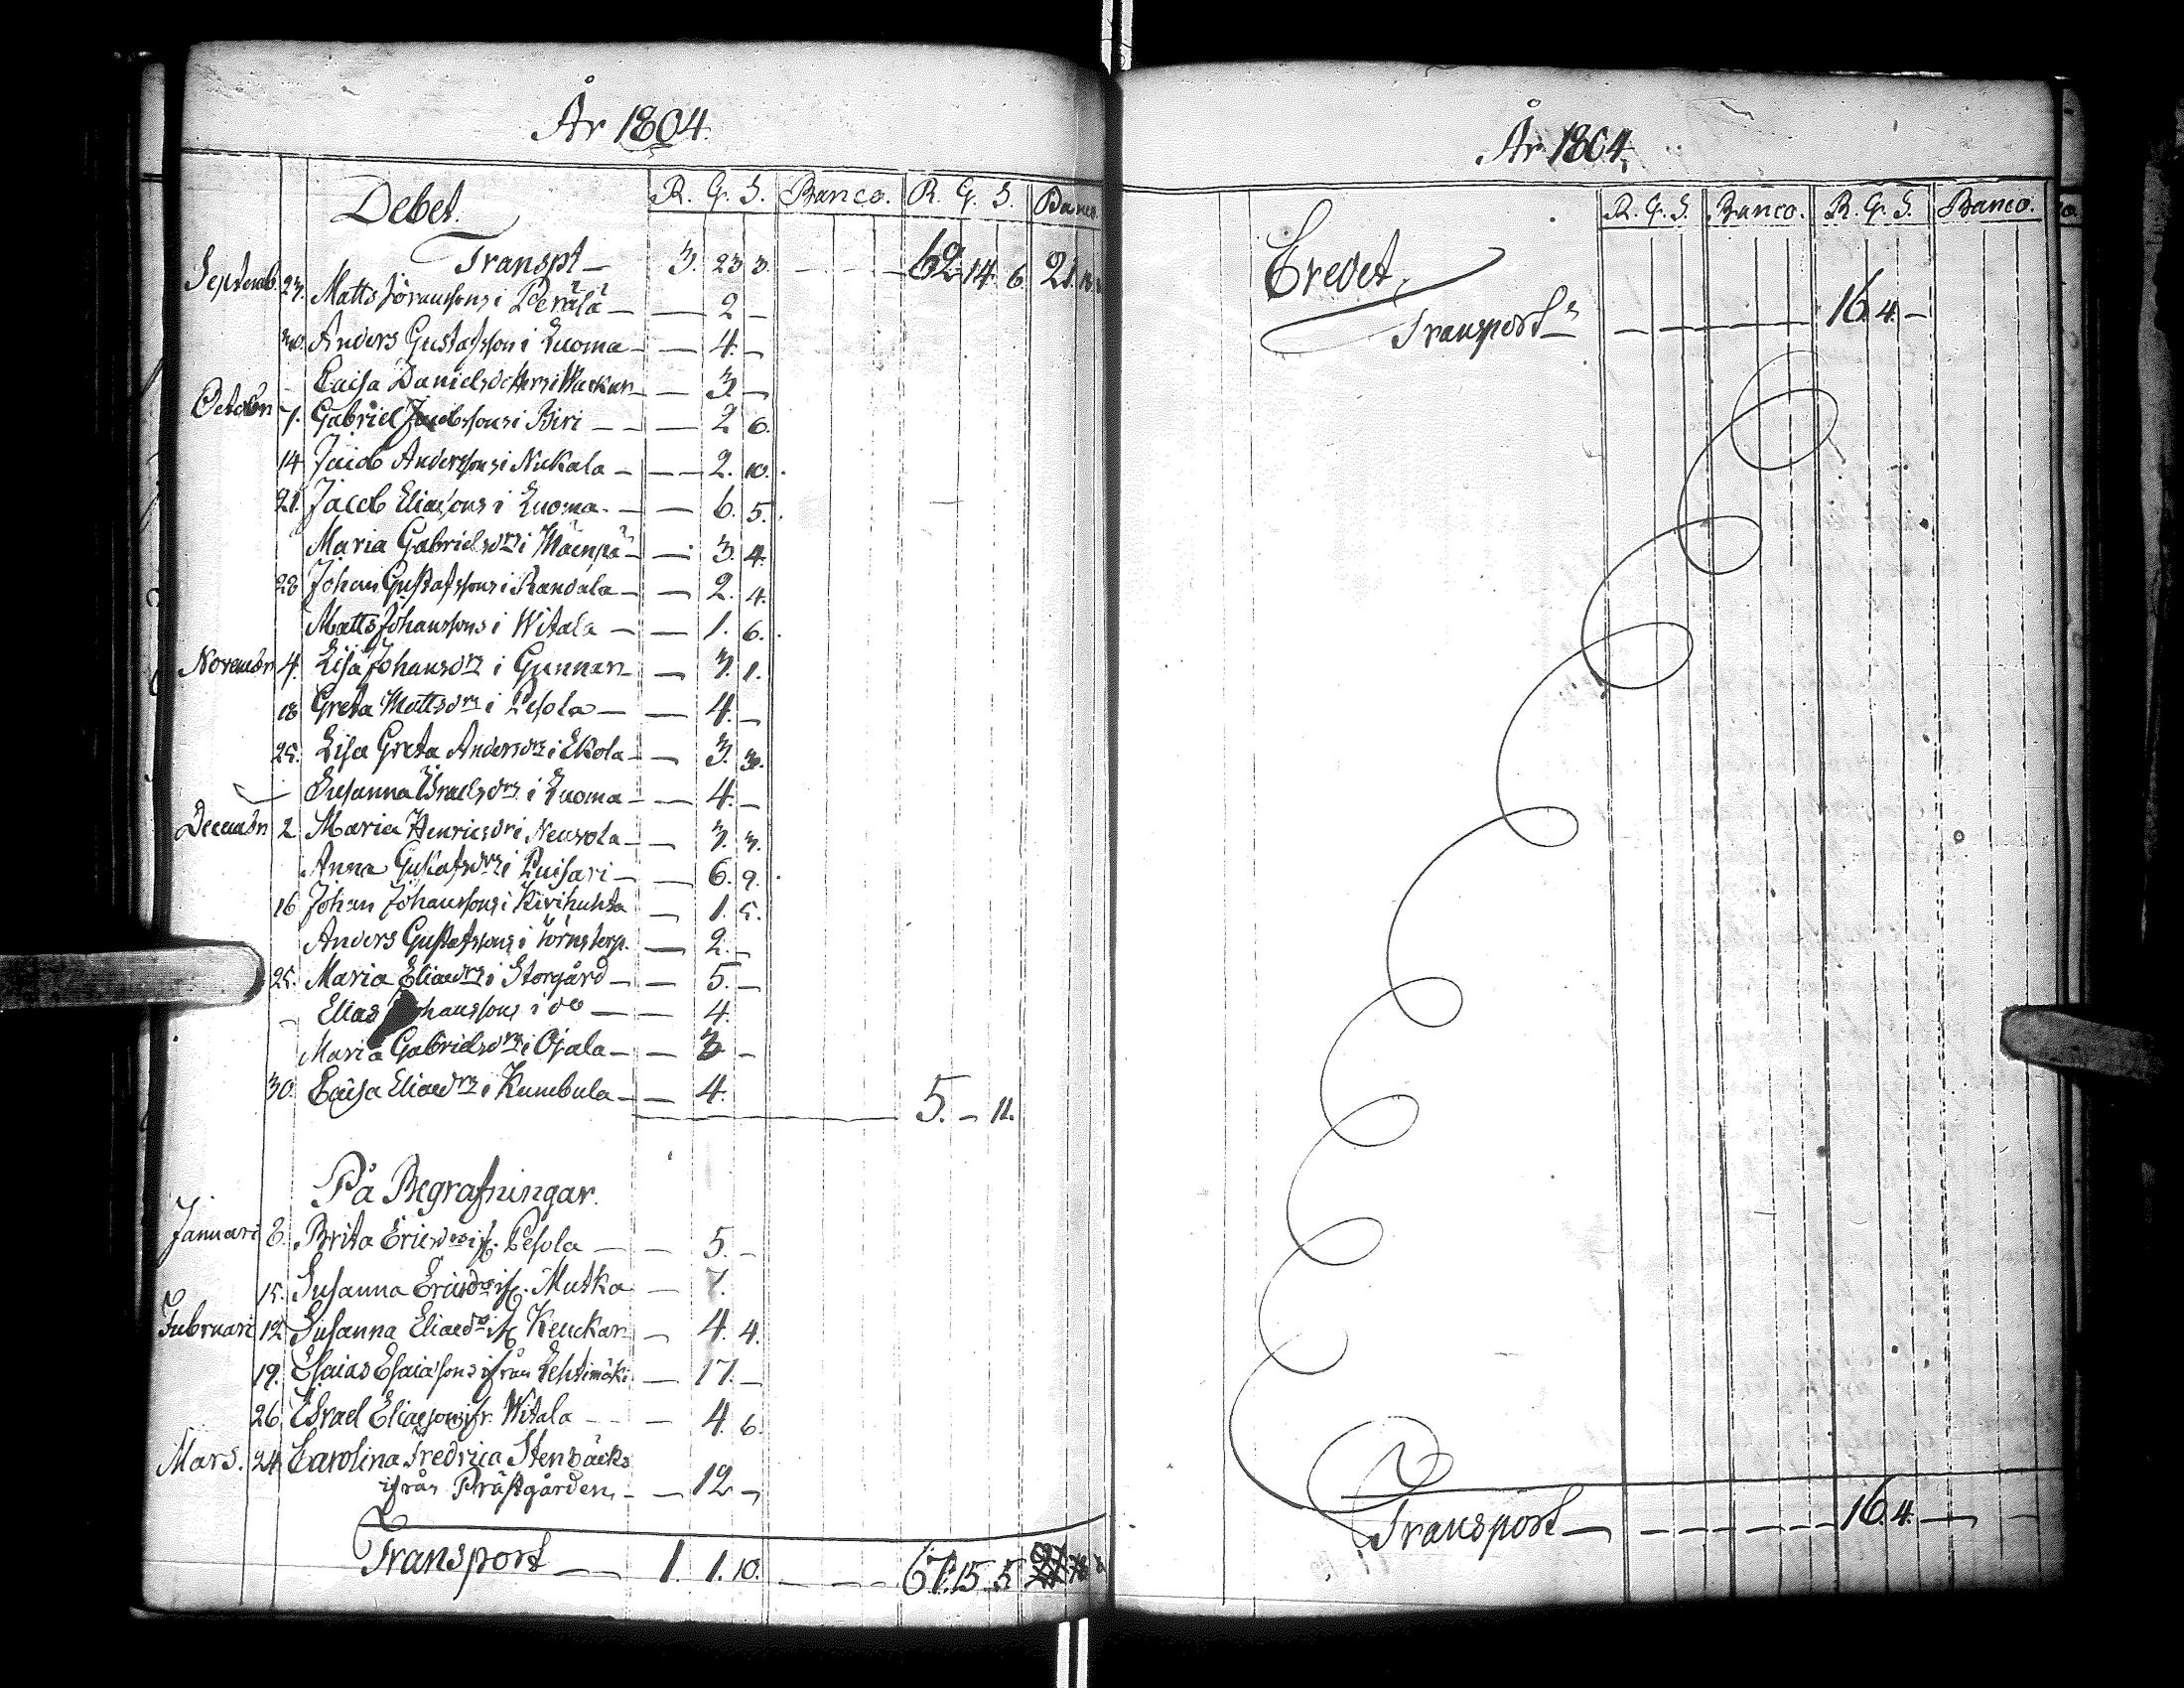 År 1804.
Debet. R. G. S. Banco. R. G. S. Banco.
Transpt — 3. 23 3. — — — 62 14. 6. 21.
Septemb. 23. Matts Göranssons i Perälä — — 2 —
30. Anders Gustafssons i Luoma — — 4. —
Caisa Danielsdotters i — 3 —
Octobr 7. Gabriel Jacobssons i Biri — — — 2 6.
14 Jacob Anderssons i Nukala — — — 2. 10.
21. Jacob Eliassons i Luoma — — 6. 5.
Maria Gabrielsdrs i Mäenpä — — 3. 4.
28 Johan Gustafssons i Randala — — 2. 4.
Matts Johanssons i Witala — — 1. 6.
Novembr 4. Lisa Johansdrs i Gunnar — — 3. 1.
18 Greta Mattsdrs i Pesola — — 4. —
25. Lisa Greta Andersdrs i Ekola — — 3. 30.
Susanna Israelsdrs i Luoma — — 4. —
Decembr 2. Maria Henricsdrs i — — 3. 3.
Anna Gustafsdrs i Luisari — — 6. 9.
16 Johan Johanssons i Kivihuhta — 1. 5.
Anders Gustafssons i Törnetorp. — 2. —
25. Maria Eliaedrs i Storgård — — 5. —
— Elias Johanssons i do — — 4.
Maria Gabrielsdrs i Ojala — — 3 —
30. Caisa Eliaedrs i Kumbula — — 4.
5. — 11.
På Begrafningar.
Januari 8. Brita Ericsdrs ifr. Pesola — — 5. —
15. Susanna Ericsdrs ifr. Mutka — 7.
Februari 12. Susanna Eliaedrs ifr Keuckar — 4. 4.
19. Esaias Esaiassons ifrån Lehtimäki — 17. —
26. Israel Eliaessons ifr. Witala — — — 4. 6.
Mars. 24 Carolina Fredrica Stenbäcks
ifrån Prästgården — — 12 —
Transport — — 1. 1. 10. — — — 67. 15. 5
År 1804.
R. G. S. Banco. R. G. S. Banco.
Credet,
Transport — — — — — — 16. 4. —
Transport — — — — — — 16. 4. — —